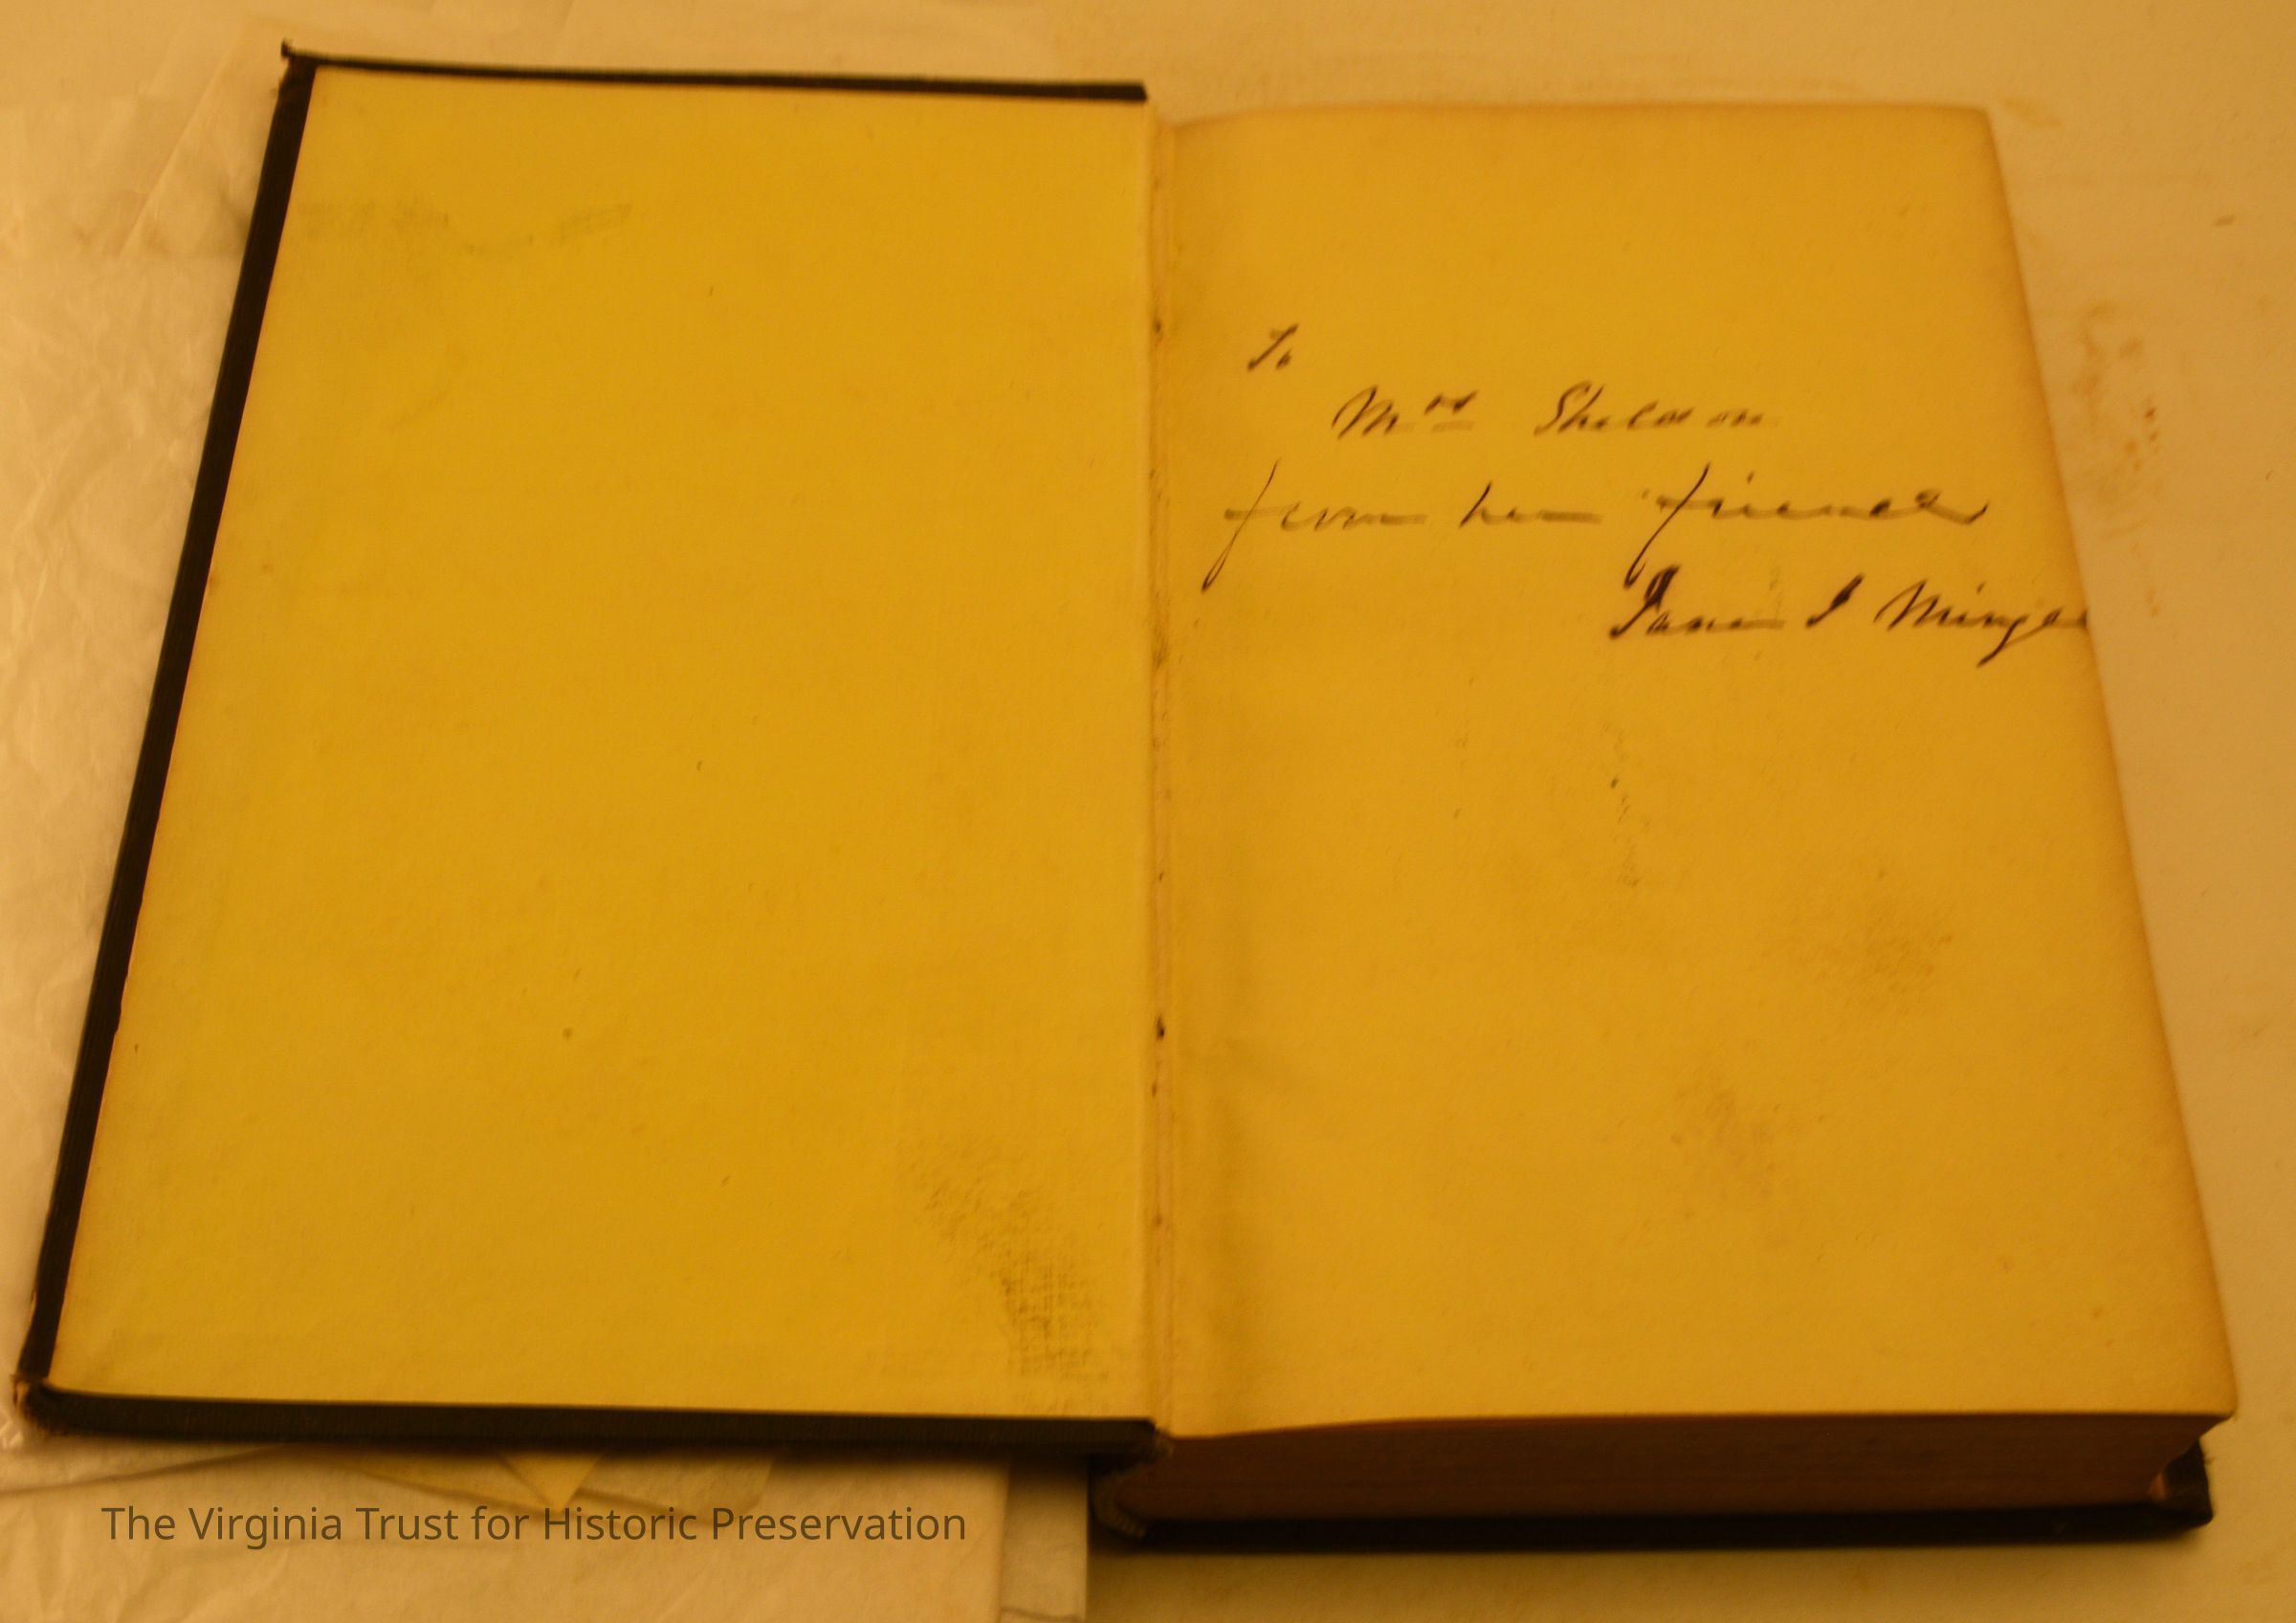 To
Mrs Sheldon
from her friend
Jane I Minge
The Virginia Trust for Historic Preservation